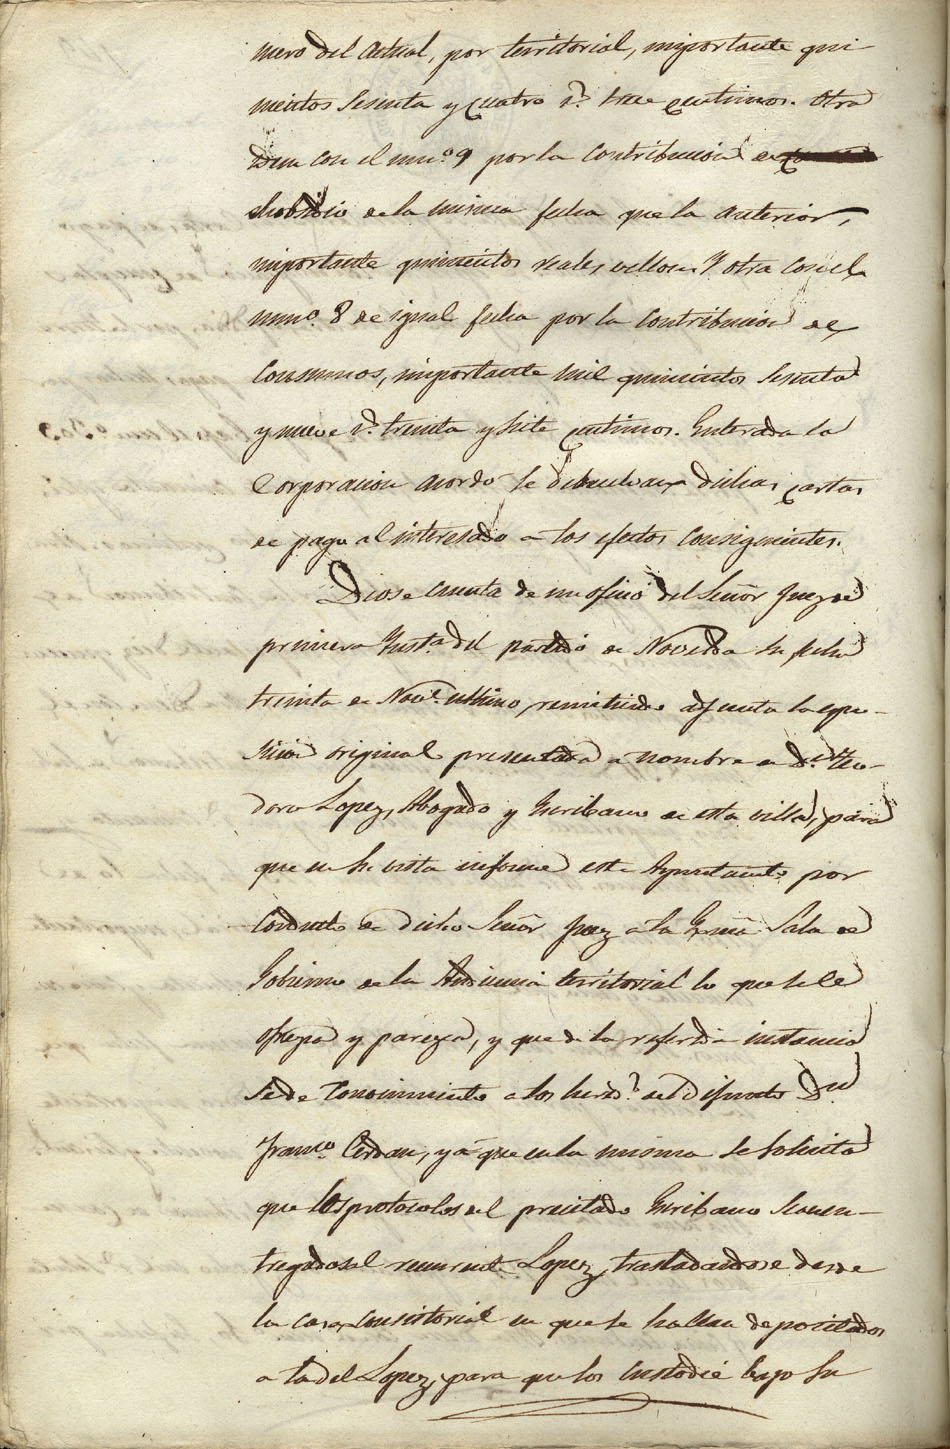 mero del actual, por territorial, importante qui-
nientos sesenta y cuatro r.s trece centimos. Otra
Idem con el num.o 9 por la contribucion de
subsidio de la misma fecha que la anterior,
importante quinientos reales vellon. Y otra con el
num.o 8 de igual fecha por la contribucion de
consumos, importante mil quinientos sesenta
y nueve r.s treinta y siete centimos. Enterada la
Corporacion acordó se debuelvan dichas cartas
de pago al interesado a los efectos consiguientes.
Diose cuenta de un oficio del Señor Juez de
primera Inst.a del partido de Novelda su fecha
treinta de Nov.e ultimo, remitiendo adjunta la espo-
sicion original presentada a nombre de D.n Teo-
doro Lopez, Abogado y Escribano de esta villa, para
que en su vista informe este Ayuntamiento por
conducto de dicho Señor Juez a la Exma Sala de
Gobierno de la Audiencia territorial lo que se le
ofrezca y parezca, y que de la referida instancia
se de conocimiento a los hered.s del difunto D.n
Fran.co Cerdan, ya que en la misma se solicita
que los protocolos del precitado Escribano sean en-
tregados al recurrente Lopez, trasladandose desde
la casa consistorial en que se hallan depositados
a la del Lopez, para que los custodie bajo su